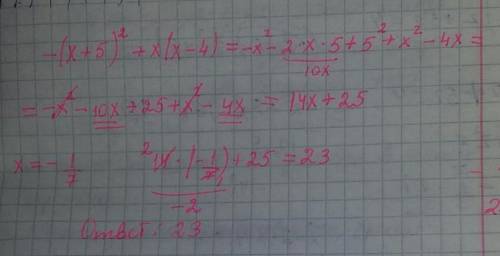 -(x+5)² + x(x-4) = -x² - 2·x·5 + 5² + x² - 4x =
10x
= -x² - 10x + 25 + x² - 4x = 14x + 25
x = - 1/7 14 · (- 1/7) + 25 = 23
-2
Ответ: 23
2